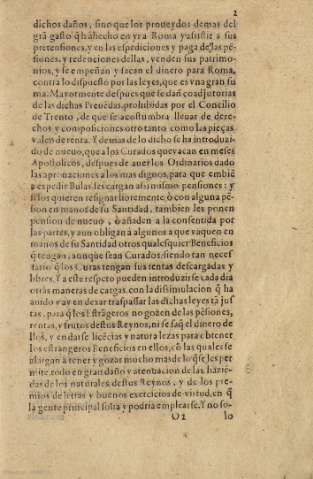 2
dichos daños, sino que los proueydos demas del
grã gasto q̃ hã hecho en yr a Roma y assistir a sus
pretensiones, y en las espediciones y paga de las pẽ-
siones, y redenciones dellas, venden sus patrimo-
nios, y se empeñan y sacan el dinero para Roma,
contra lo dispuesto por las leyes, que es vna gran su
ma. Mayormente despues que se dan coadjutorias
de las dichas Preuẽdas, prohibidas por el Concilio
de Trento, de que se acostumbra lleuar de dere-
chos y composiciones otro tanto como las pieças
valen de renta. Y demas de lo dicho se ha introduzi-
do de nueuo, que a los Curados que vacan en meses
Apostolicos, despues de auerlos Ordinarios dado
las aprouaciones a los mas dignos, para que embiẽ
a espedir Bulas les cargan assi mismo pensiones: y
si los quieren resignar libremente, ò con alguna pẽ-
sion en manos de su Santidad, tambien les ponen
pension de nueuo, ò añaden a la consentida por
las partes, y aun obligan à algunos a que vaquen en
manos de su Santidad otros qualesquier Beneficios
q̃ tengan, aunque sean Curados: siendo tan neces
sario q̃ los Curas tengan sus rentas descargadas y
libres. Y a este respeto pueden introduzirse cada dia
otras maneras de cargas, con la dissimulacion q̃ ha
auido y ay en dexar traspassar las dichas leyes tã jus
tas, para q̃ los Estrãgeros no gozen de las pẽsiones,
rentas, y frutos destus Reynos, ni se saq̃ el dinero de
llos, y en darse licẽcias y naturalezas para obtener
los estrangeros Beneficios en ellos, cõ las quales se
alargan a tener y gozar mucho mas de lo q̃ se les per
mite, todo en gran daño y de las haziẽ-
das de los naturales destus Reynos, y de los pre-
mios de letras y buenos exercicios de virtud, en q̃
la gente principal solia y podria emplearse. Y no so-
lo